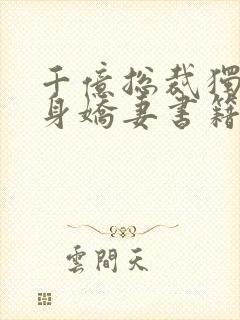 千億總裁獨
身嬌妻書籍
雲間天